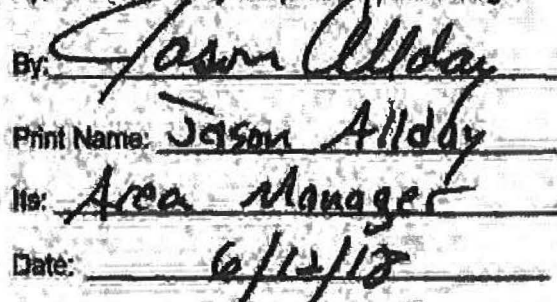 By: Jason Allday
Print Name: Jason Allday
Its: Area Manager
Date: 6/12/18